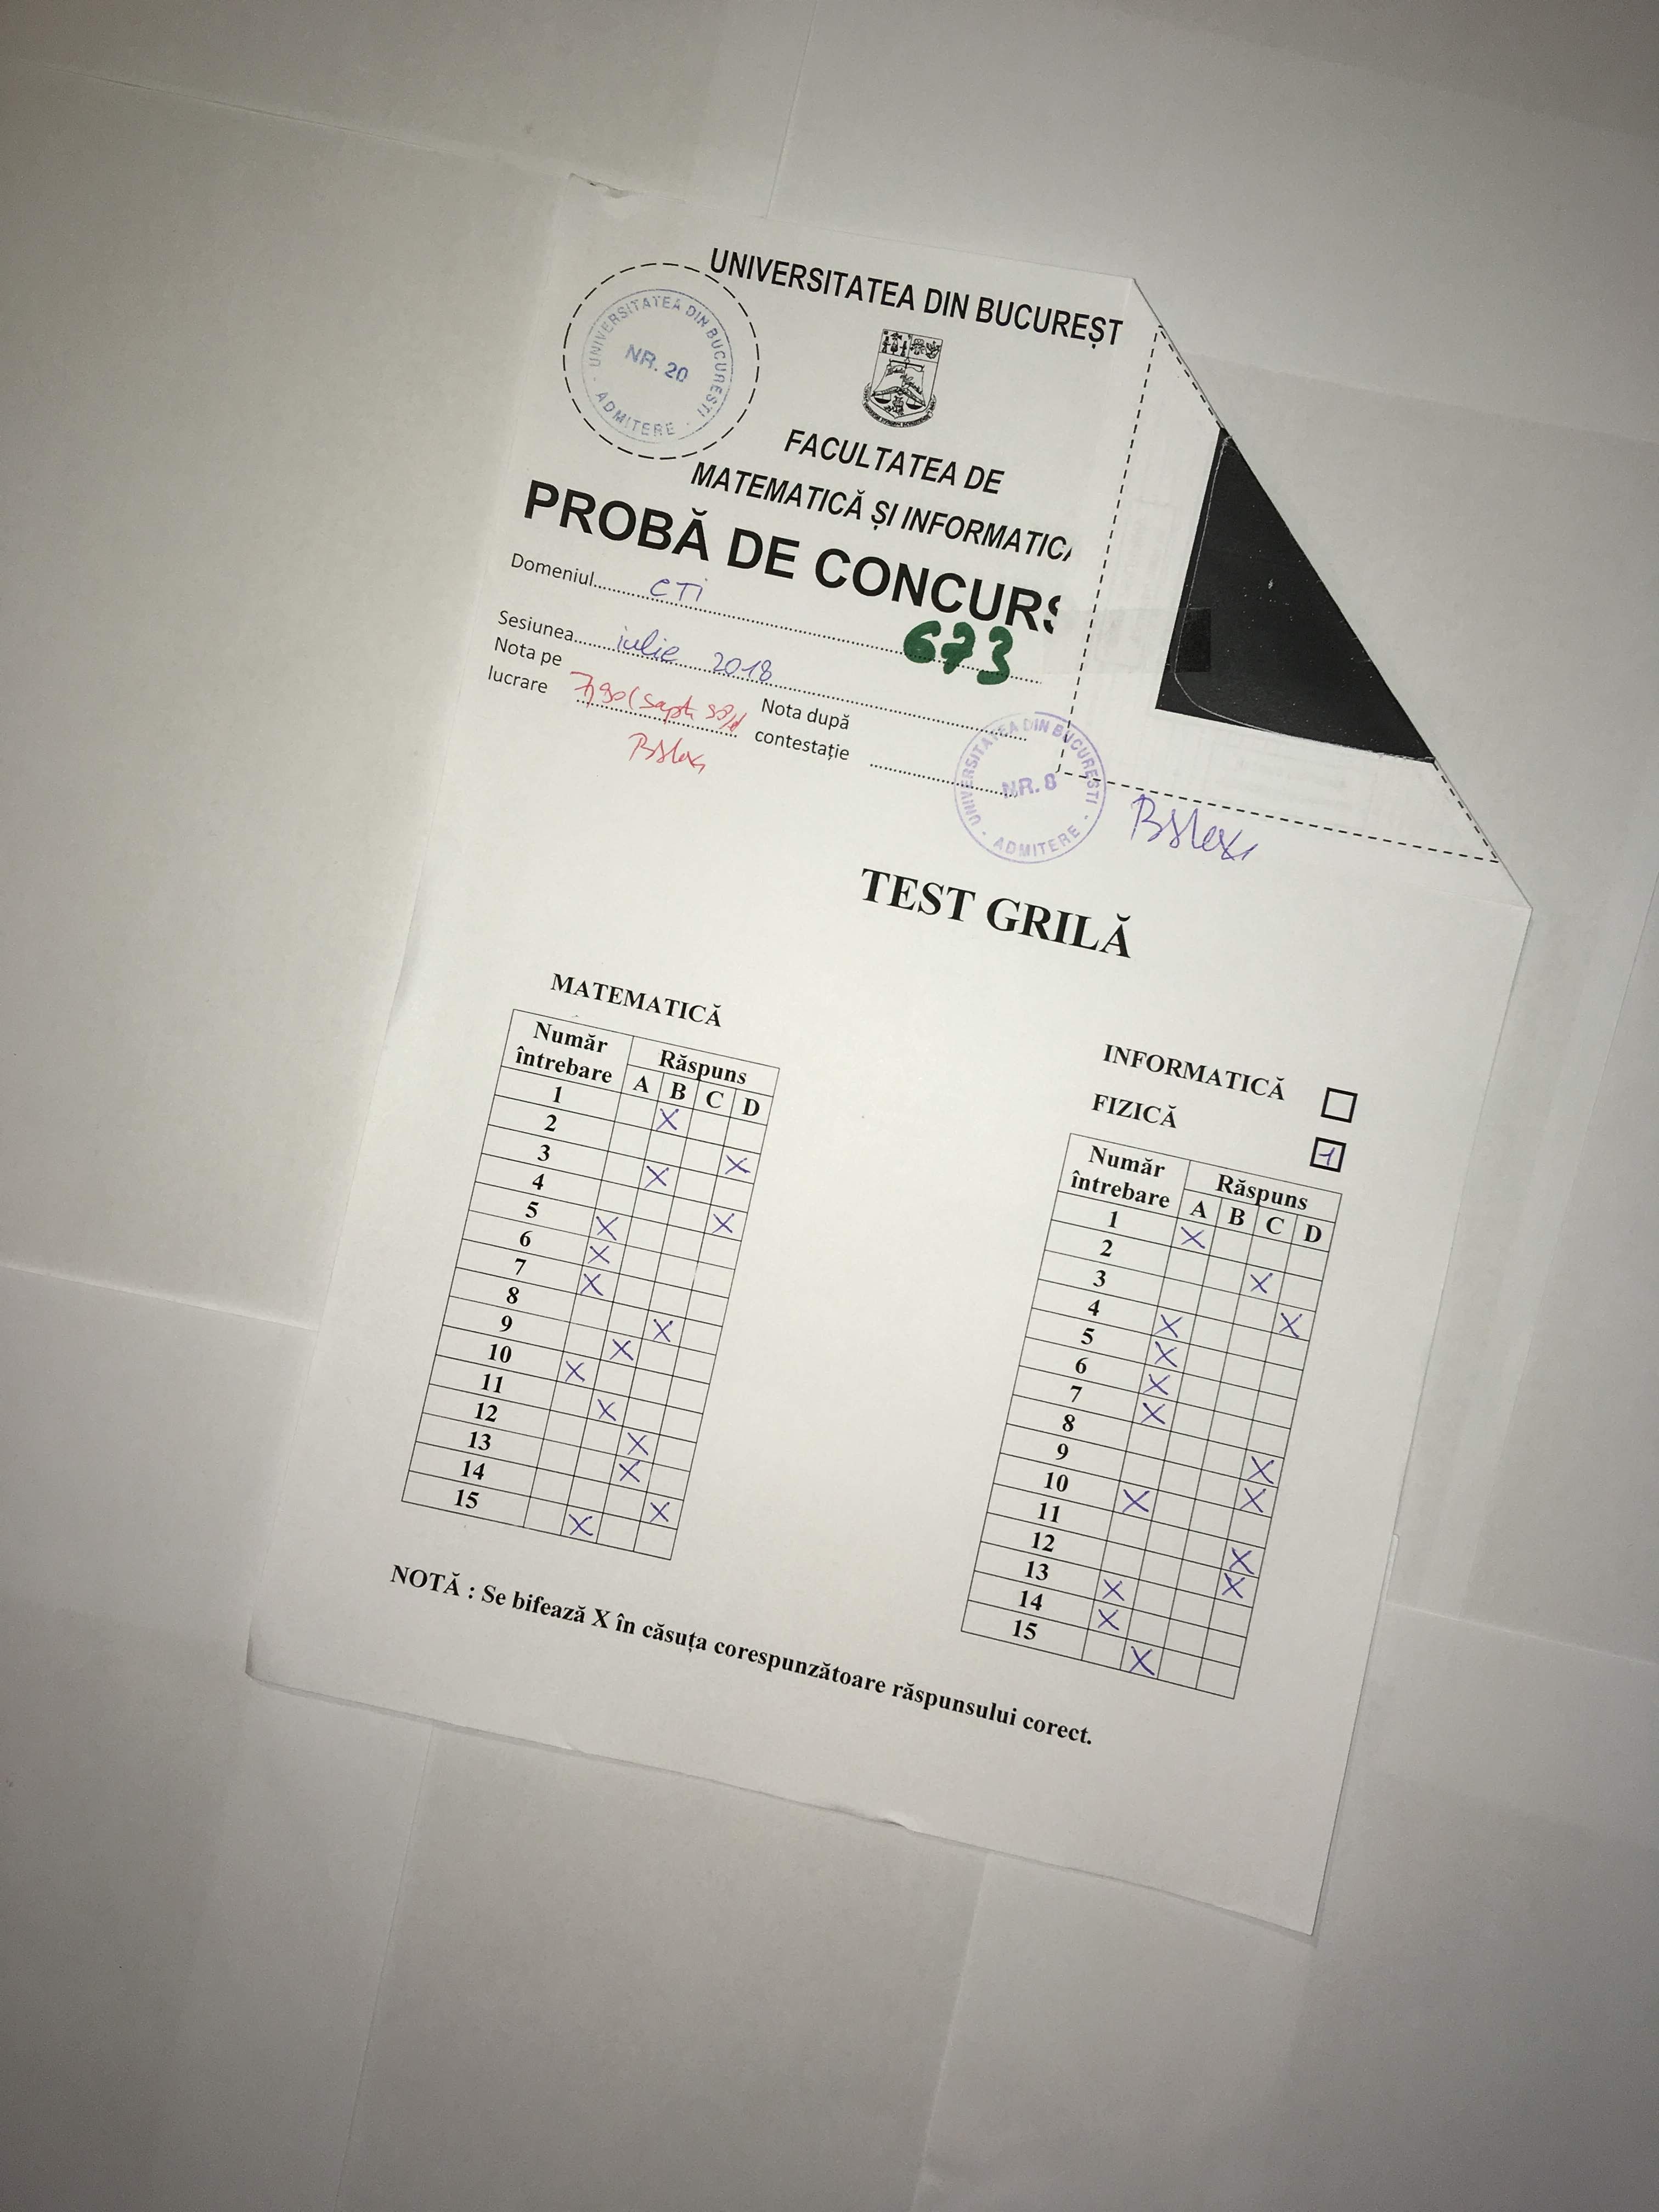 UNIVERSITATEA DIN BUCUREȘT
UNIVERSITATEA DIN BUCURESTI
NR. 20
ADMITERE
FACULTATEA DE
MATEMATICĂ ȘI INFORMATIC
PROBĂ DE CONCURS
Domeniul CTi
673
Sesiunea iulie 2018
Nota pe
lucrare
Nota după
contestație
UNIVERSITATEA DIN BUCURESTI
NR. 8
ADMITERE
TEST GRILĂ
MATEMATICĂ
Număr
întrebare
Răspuns
A B C D
1 X
2 X
3 X
4 X
5 X
6 X
7 X
8 X
9 X
10 X
11 X
12 X
13 X
14 X
15 X
INFORMATICĂ
FIZICĂ 1
Număr
întrebare
Răspuns
A B C D
1 X
2 X
3 X
4 X
5 X
6 X
7 X
8 X
9 X
10 X
11 X
12 X
13 X
14 X
15 X
NOTĂ : Se bifează X în căsuța corespunzătoare răspunsului corect.